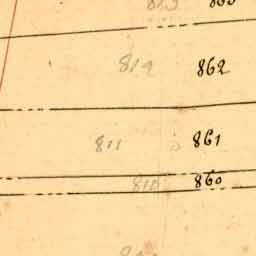 812 862
811 861
810 860